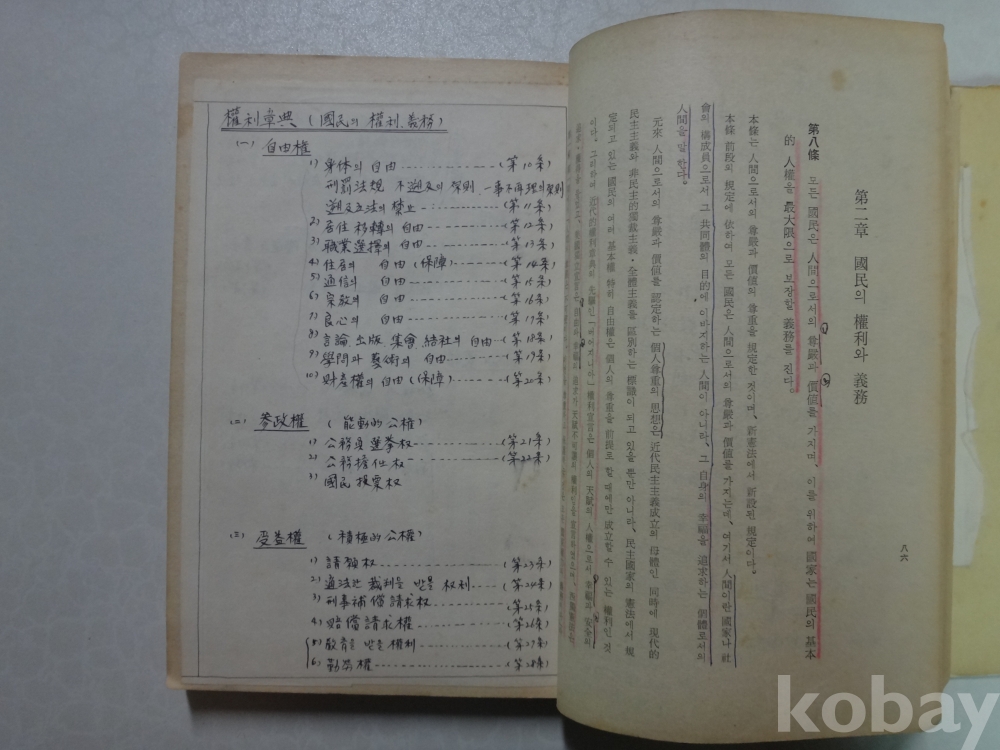 權利章典 (國民의 權利、義務)
(一) 自由權
1) 身体의 自由 ------- (第10条)
刑罰法規 不遡及의 原則 一事不再理의 原則
遡及立法의 禁止 ------- (第11条)
2) 居住 移轉의 自由 ------- (第12条)
3) 職業選擇의 自由 ------- (第13条)
4) 住居의 自由 (保障) ------- (第14条)
5) 通信의 自由 ------- (第15条)
6) 宗敎의 自由 ------- (第16条)
7) 良心의 自由 ------- (第17条)
8) 言論 出版 集會 結社의 自由 -- (第18条)
9) 學問과 藝術의 自由 ------- (第19条)
10) 財産權의 自由 (保障) ------- (第20条)
(二) 參政權 (能動的 公權)
1) 公務員選挙权 ------- (第21条)
2) 公務擔任权 ------- (第22条)
3) 國民投票权
(三) 受益權 (積極的 公權)
1) 請願权 ------- (第23条)
2) 適法한 裁判을 받을 权利 ---- (第24条)
3) 刑事補償請求权 ------- (第25条)
4) 賠償請求權 ------- (第26条)
5) 敎育을 받을 權利 ------- (第27条)
6) 勤勞權 ------- (第28条)
第二章 國民의 權利와 義務
八六
第八條 모든 國民은 人間으로서의 尊嚴과 價値를 가지며、이를 위하여 國家는 國民의 基本
的 人權을 最大限으로 보장할 義務를 진다。
本條는 人間으로서의 尊嚴과 價値의 尊重을 規定한 것이며、新憲法에서 新設된 規定이다。
本條 前段의 規定에 依하여 모든 國民은 人間으로서의 尊嚴과 價値를 가지는데、여기서 人間이란 國家나 社
會의 構成員으로서 그 共同體의 目的에 이바지하는 人間이 아니라、그 自身의 幸福을 追求하는 個體로서의
人間을 말한다。
元來 人間으로서의 尊嚴과 價値를 認定하는 個人尊重의 思想은 近代民主主義成立의 母體인 同時에 現代的
民主主義와 非民主的 獨裁主義・全體主義를 區別하는 標識이 되고 있을 뿐만 아니라、民主國家의 憲法에서 規
定되고 있는 國民의 여러 基本權 特히 自由權은 個人의 尊重을 前提로 할 때에만 成立할 수 있는 權利인 것
이다。그리하여 近代的 權利章典의 先驅인「버어지니아」權利宣言은 個人의 天賦의 人權으로서 幸福과 安全의
kobay